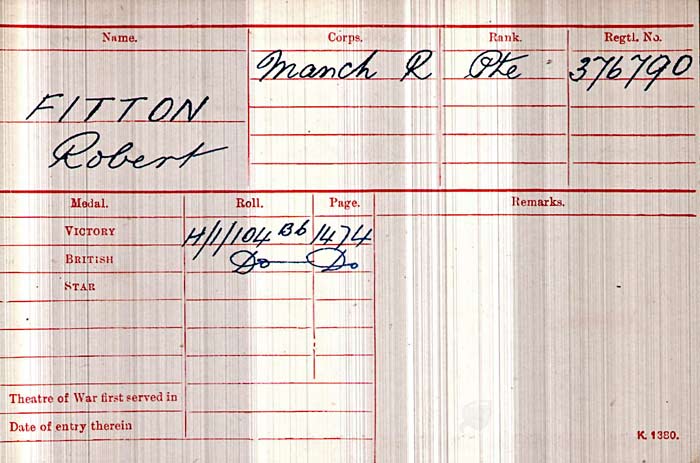 Name. Corps. Rank. Regtl. No.
Manch R Pte 376790
FITTON
Robert
Medal. Roll. Page. Remarks.
VICTORY H/1/104 B6 1474
BRITISH Do Do
STAR
Theatre of War first served in
Date of entry therein
K. 1380.